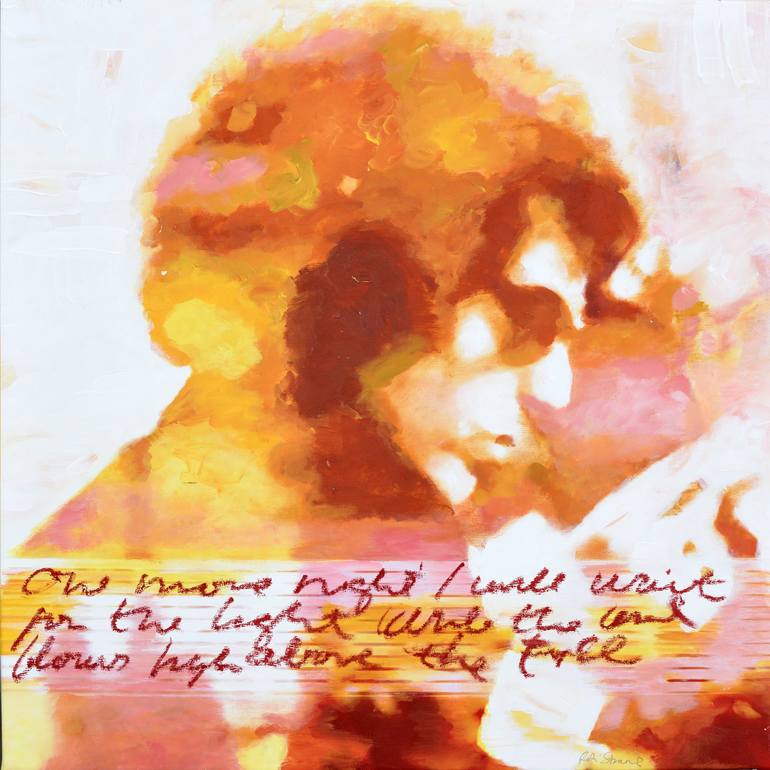 One more night I will wait
for the light while the wind
blows high above the tree